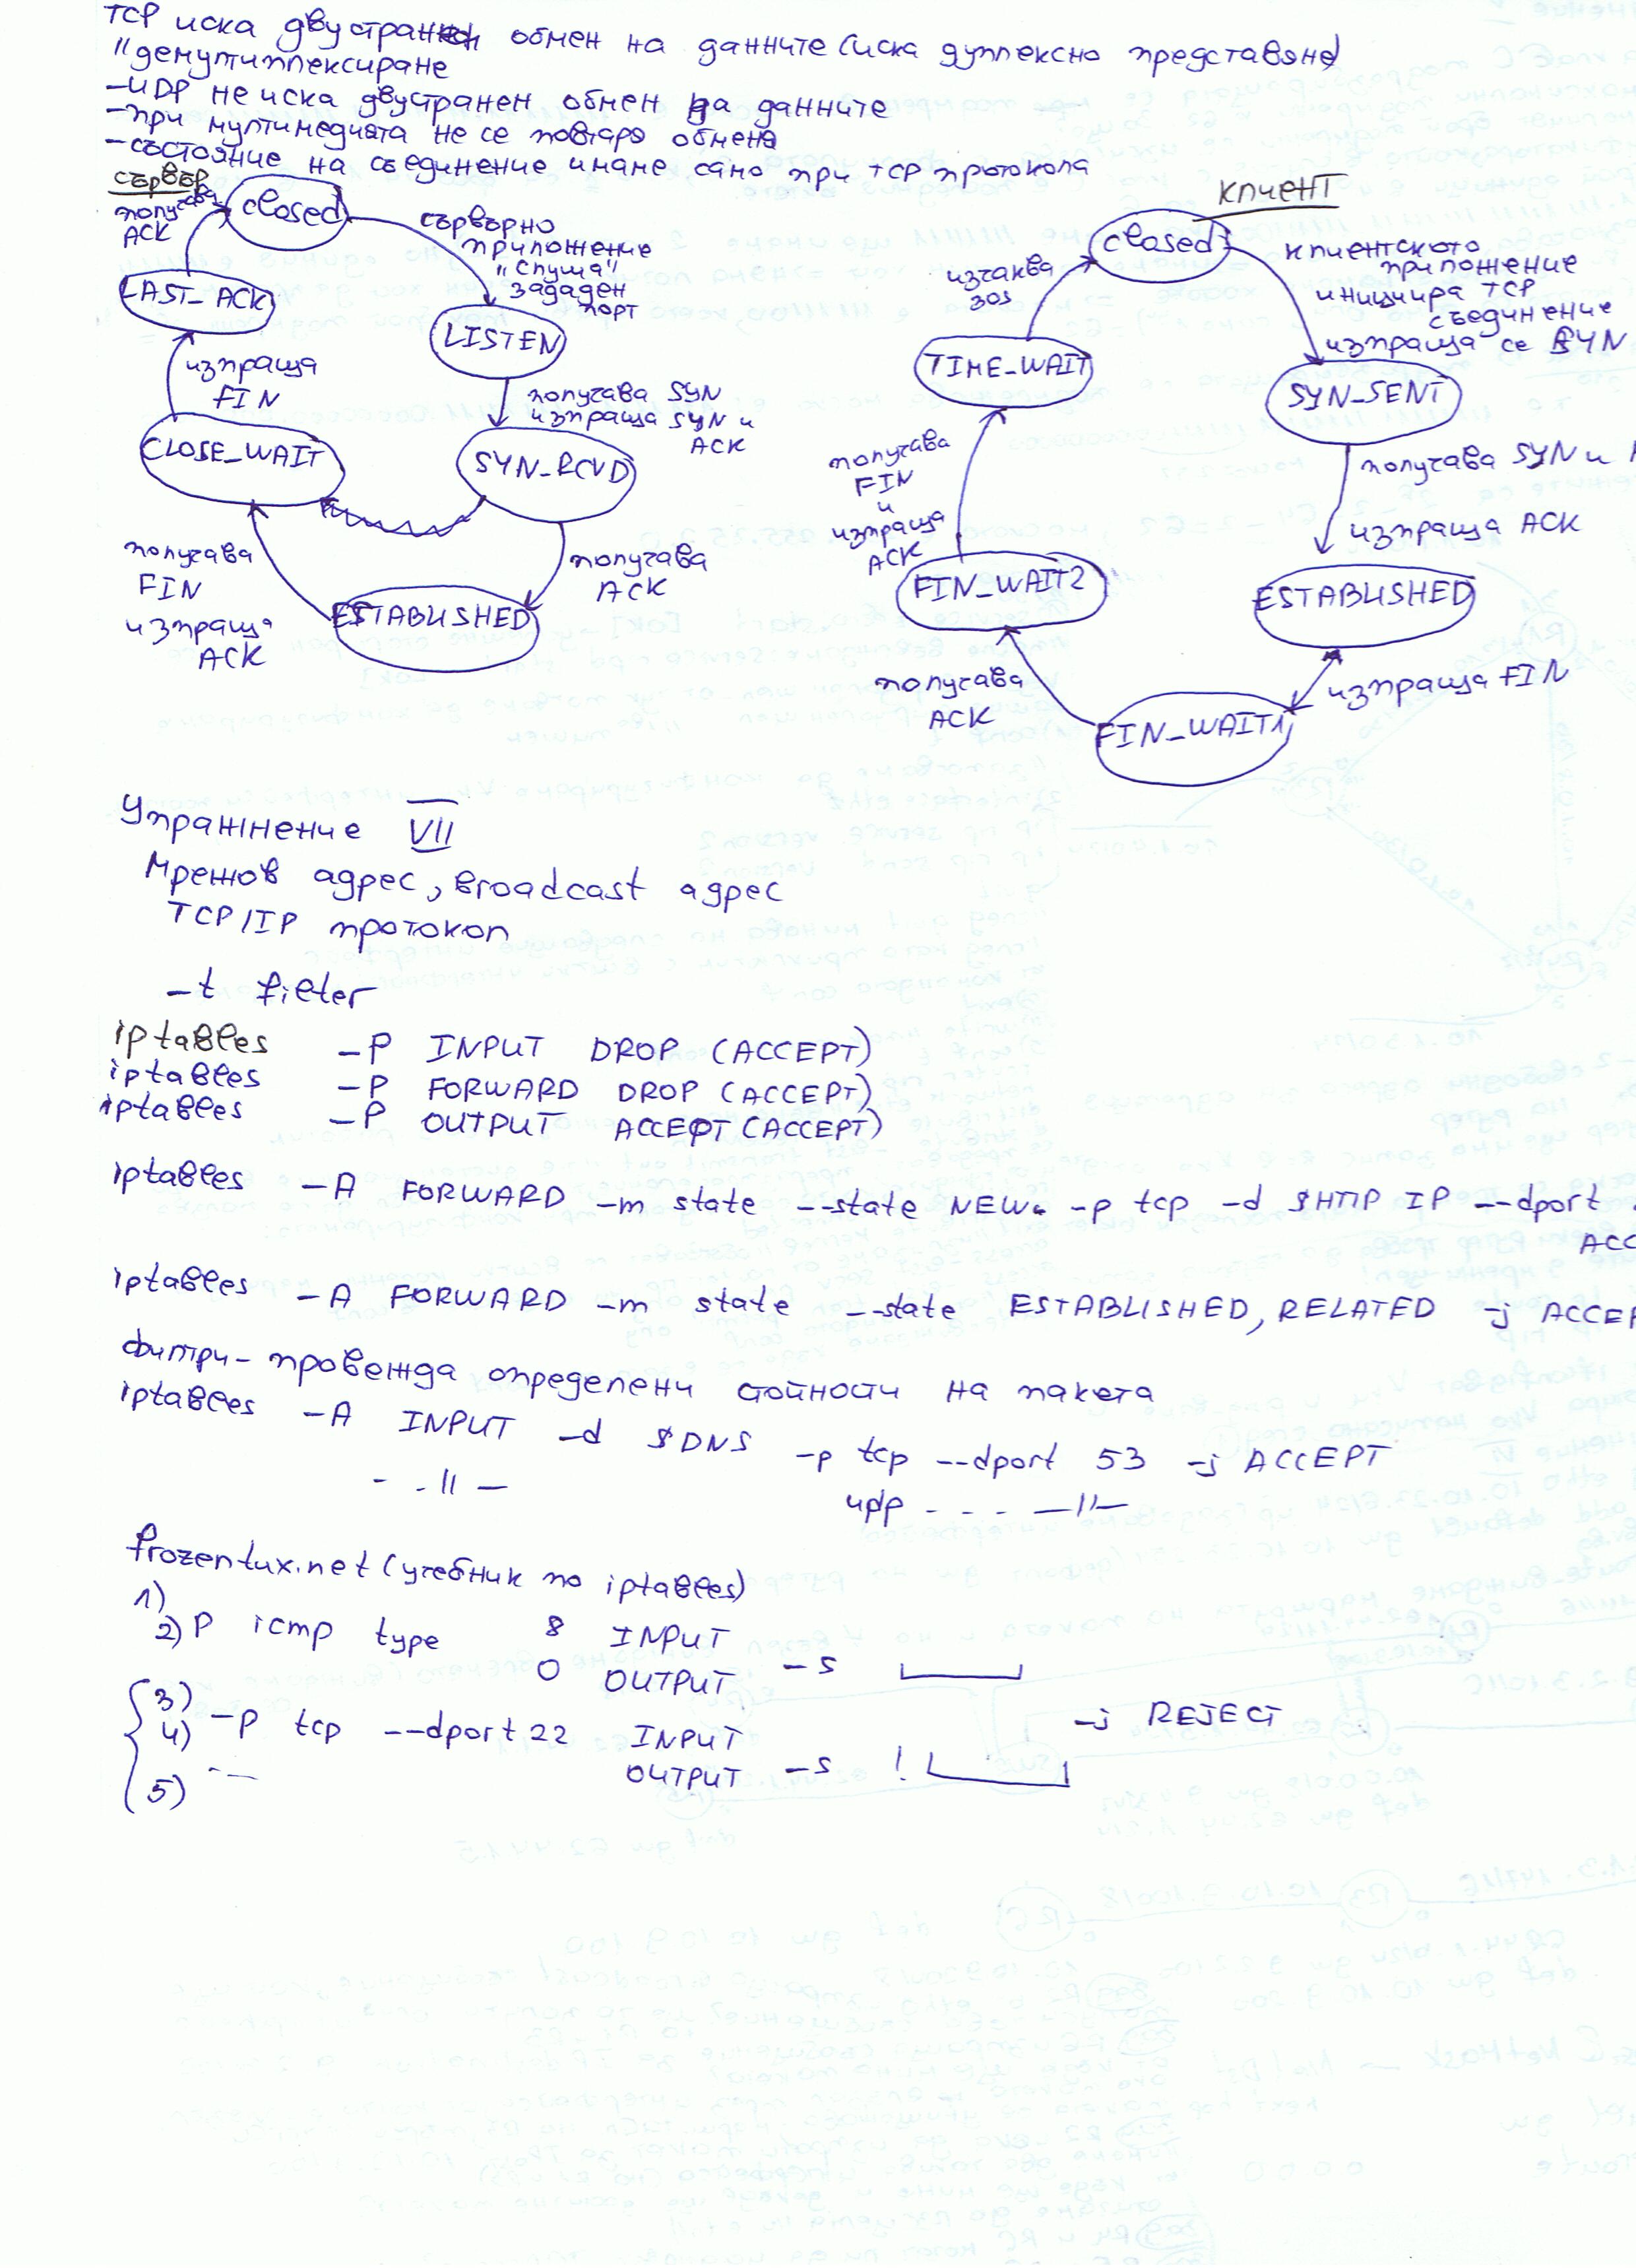 TCP иска двустранен обмен на данните (иска дуплексно представяне)
"демултиплексиране
-UDP не иска двустранен обмен на данните
-при мултимедията не се повтаря обмена
-състояние на съединение имаме само при TCP протокола
сървър
closed
получава
ACK
сървърно
приложение
"слуша"
зададен
порт
LAST_ACK
LISTEN
изпраща
FIN
получава SYN
изпраща SYN и
ACK
CLOSE_WAIT
SYN_RCVD
получава
FIN
изпраща
ACK
получава
ACK
ESTABLISHED
клиент
closed
изчаква
30s
клиентското
приложение
инициира TCP
съединение
изпраща се SYN
TIME_WAIT
SYN_SENT
получава
FIN
и
изпраща
ACK
получава SYN и
изпраща ACK
FIN_WAIT2
ESTABLISHED
получава
ACK
изпраща FIN
FIN_WAIT1
Упражнение VII
Мрежов адрес, Broadcast адрес
TCP/IP протокол
-t filter
iptables -P INPUT DROP (ACCEPT)
iptables -P FORWARD DROP (ACCEPT)
iptables -P OUTPUT ACCEPT (ACCEPT)
iptables -A FORWARD -m state --state NEW -p tcp -d $HTTP IP --dport
ACC
iptables -A FORWARD -m state --state ESTABLISHED, RELATED -j ACCEP
филтри - провежда определени стойности на пакета
iptables -A INPUT -d $DNS -p tcp --dport 53 -j ACCEPT
- - || - udp - - - -||-
frozentux.net (учебник по iptables)
1)
2) P icmp type 8 INPUT
0 OUTPUT -s
3)
4) -P tcp --dport 22 INPUT -j REJECT
OUTPUT -s !
5)